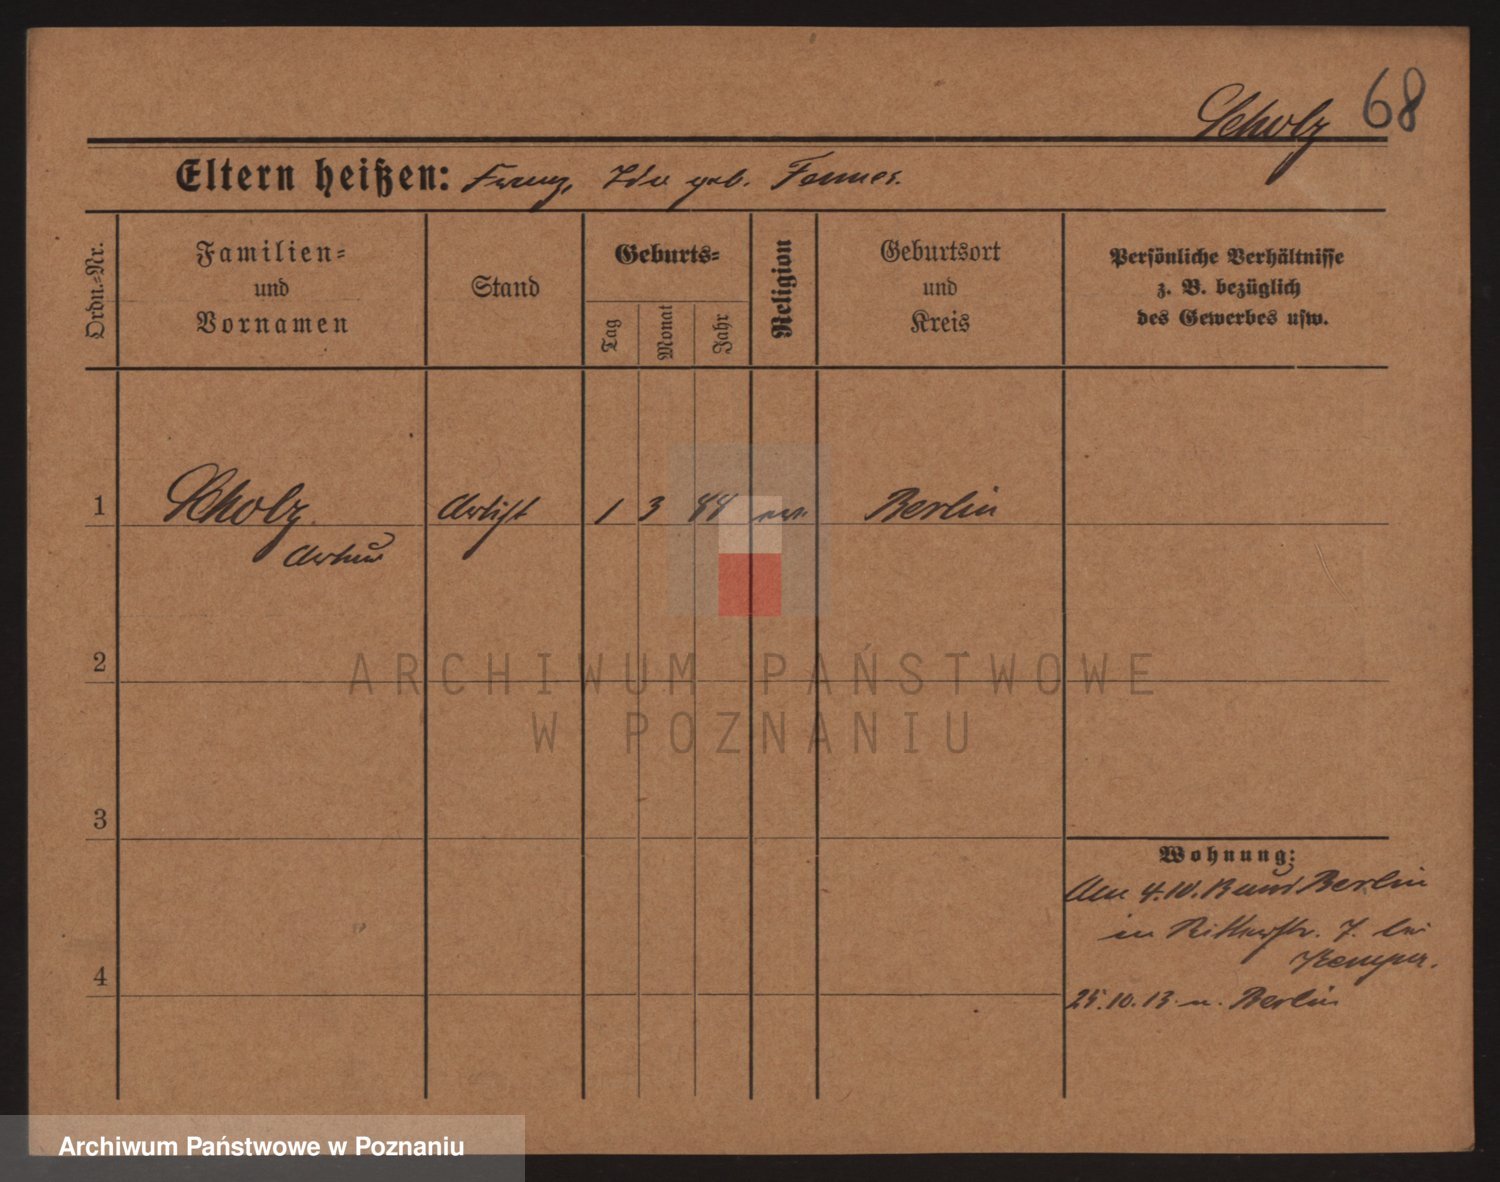 Scholz 68
Eltern heißen: Franz, Ida geb.
Ordn.-Nr.
Familien=
und
Vornamen
Stand
Geburts=
Tag
Monat
Jahr
Religion
Geburtsort
und
Kreis
Persönliche Verhältnisse
z. B. bezüglich
des Gewerbes usw.
1 Scholz Artist 1 3 84 ev. Berlin
Arthur
2
ARCHIWUM PAŃSTWOWE
W POZNANIU
3
Wohnung:
Am 4.10.13 aus Berlin
in Ritterstr. 7. bei
Kemper.
4
25.10.13 n. Berlin
Archiwum Państwowe w Poznaniu